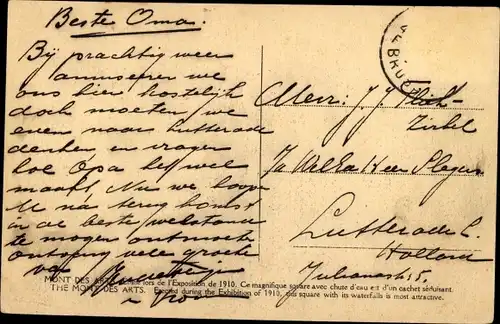 Beste Oma.
Bij prachtig weer
amuseeren we
ons hier kostelijk
doch moeten we
even naar Lutterade
denken en vragen
hoe Opa het wel
maakt. Nu we hopen
U na terug komst
in de beste welstand
te mogen ontmoeten
ontvang vele groete
van
BRUGGE
Mevr: J. J.
Zirbel
Lutterade L.
Holland
Julianastr 5,
MONT DES ARTS. lors de l'Exposition de 1910. Ce magnifique square avec chute d'eau est d'un cachet séduisant.
THE MONT DES ARTS. Erected during the Exhibition of 1910, this square with its waterfalls is most attractive.